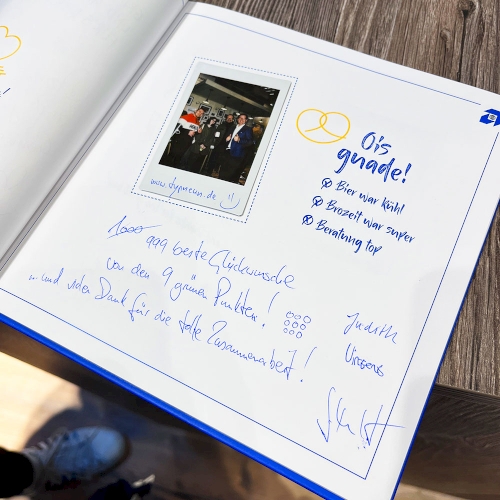 Ois
gnade!
Bier war kühl
Brozeit war super
Beratung top
1000 999 beste Glückwünsche
von den 9 grünen Punkten!
... und vielen Dank für die tolle Zusammenarbeit!
Judith